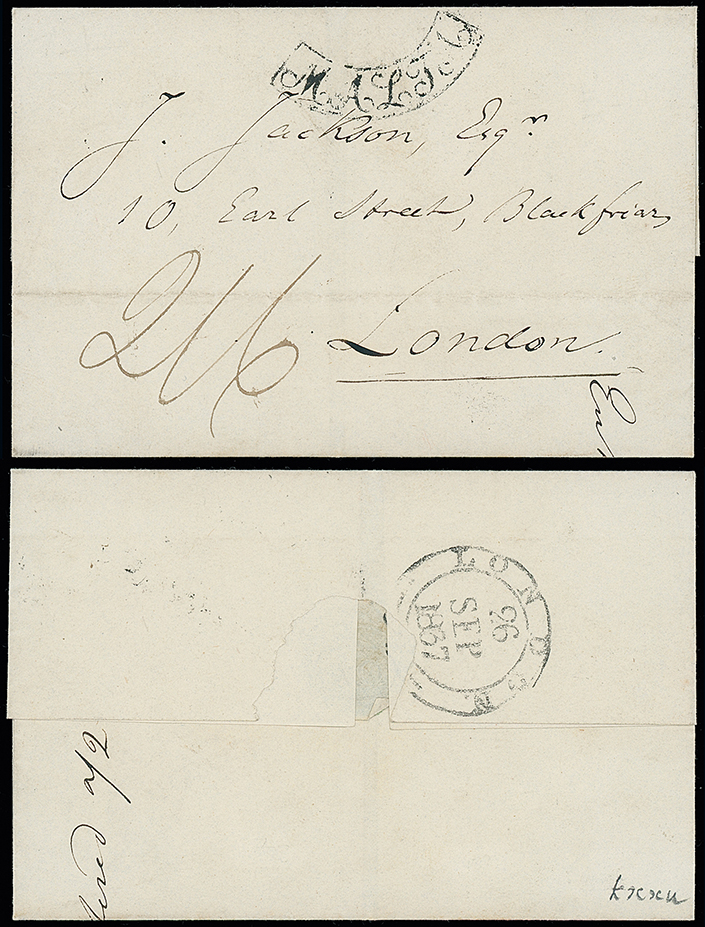 MALTA
J. Jackson, Esqr
10, Earl Street, Blackfriars
2/6 London.
LONDON
26
SEP
1837